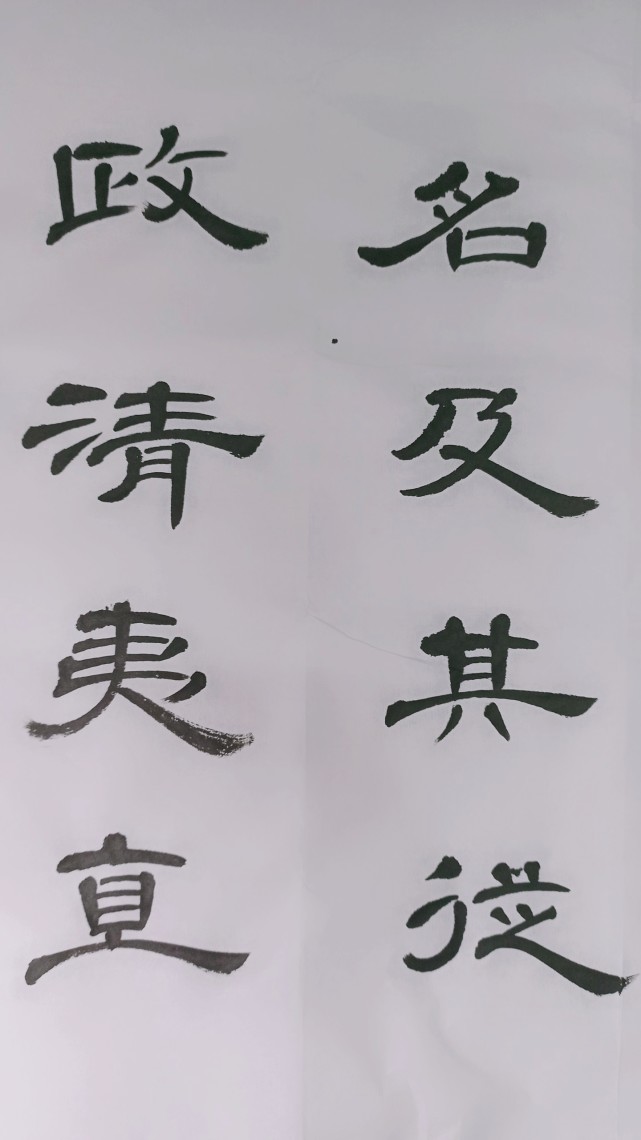 名及其從
政清夷直